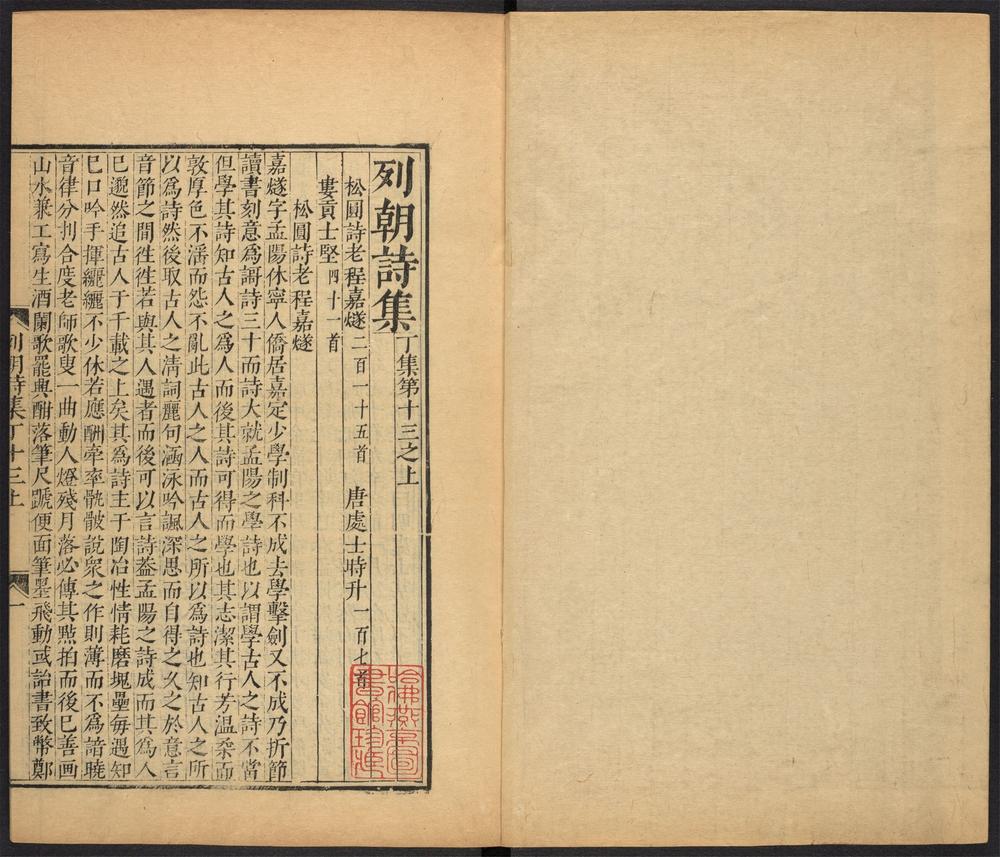 列朝詩集丁集第十三之上
松圓詩老程嘉燧二百一十五首 唐處士時升一百七首
婁貢士堅四十一首
松圓詩老程嘉燧
嘉燧字孟陽休寧人僑居嘉定少學制科不成去學擊劍又不成乃折節
讀書刻意爲謌詩三十而詩大就孟陽之學詩也以謂學古人之詩不當
但學其詩知古人之爲人而後其詩可得而學也其志潔其行芳温柔而
敦厚色不滛而怨不亂此古人之人而古人之所以爲詩也知古人之所
以爲詩然後取古人之清詞麗句涵泳吟諷深思而自得之久之於意言
音節之間徃徃若與其人遇者而後可以言詩葢孟陽之詩成而其爲人
巳邈然追古人于千載之上矣其爲詩主于陶冶性情耗磨塊壘每遇知
巳口吟手揮纚纚不少休若應酬牽率骫骳說衆之作則薄而不爲諳曉
音律分刌合度老師歌叟一曲動人燈殘月落必傳其點拍而後巳善画
山水兼工寫生酒闌歌罷興酣落筆尺蹏便面筆墨飛動或詒書致幣鄭
列朝詩集丁十三上
一
哈佛燕京圖書館珍藏